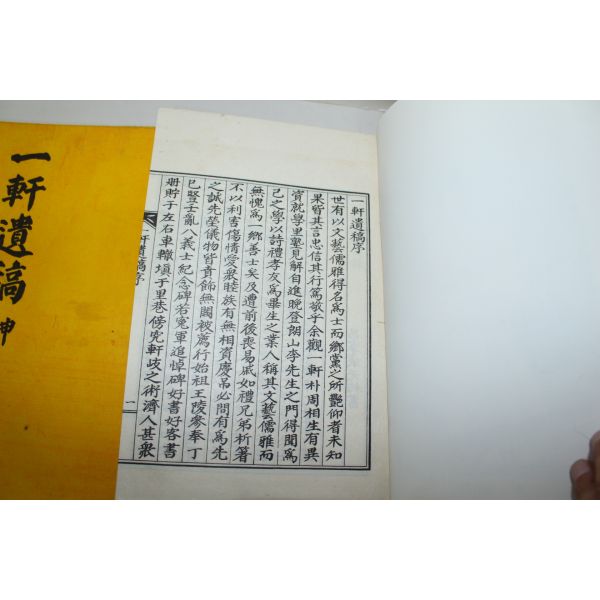 一軒遺稿序
世有以文藝儒雅得名爲士而鄉黨之所艶仰者未知
果皆其言忠信其行篤敬乎余觀一軒朴周相生有異
資就學里塾見解自進晩登朗山李先生之門得聞爲
己之學以詩禮孝友爲畢生之業人稱其文藝儒雅而
無愧爲一鄉善士矣及遭前後喪易戚如禮兄弟析箸
不以利害傷情愛衆睦族有無相資慶吊必問有爲先
之誠先塋儀物皆賁飾無闕被薦行始祖王陵參奉丁
巳豎壬亂八義士紀念碑若寃軍追悼碑好書好客書
册貯于左右車轍塡于里巷傍究軒歧之術濟人甚衆
一軒遺稿序
一
一軒遺稿 坤